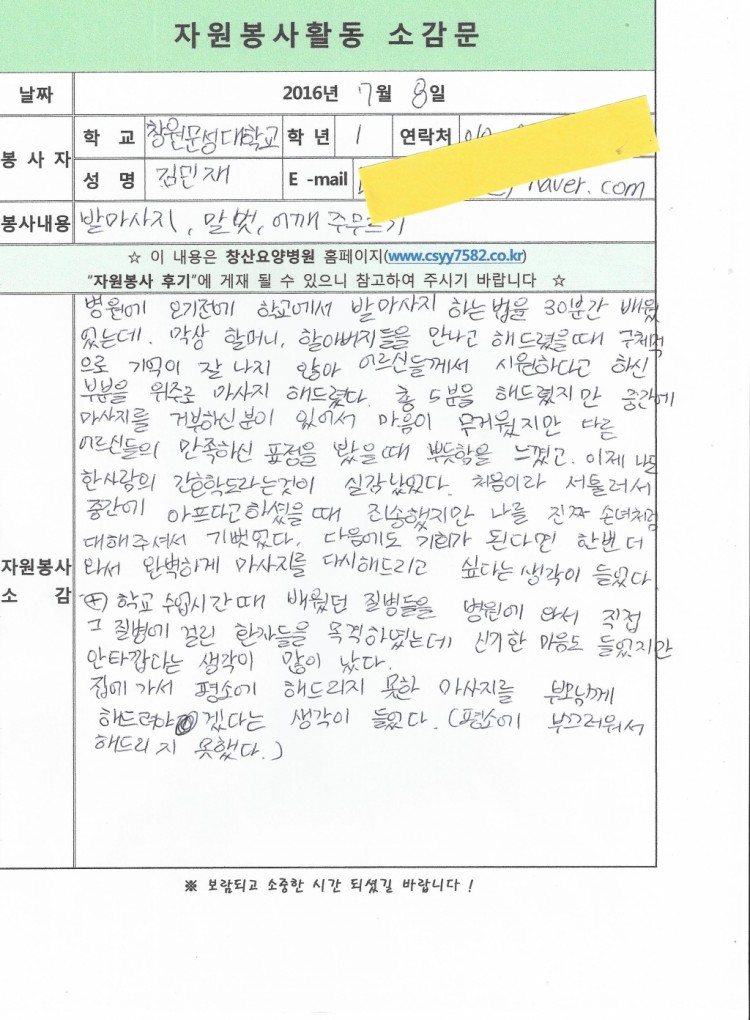 자원봉사활동 소감문
날짜 2016년 7월 8일
봉사자
학 교 창원문성대학교 학 년 1 연락처
성 명 김민재 E -mail naver.com
봉사내용 발마사지, 말벗, 어깨 주무르기
☆ 이 내용은 창산요양병원 홈페이지(www.csyy7582.co.kr)
"자원봉사 후기"에 게재 될 수 있으니 참고하여 주시기 바랍니다 ☆
자원봉사
소 감
병원에 오기전에 학교에서 발마사지 하는법을 30분간 배웠
었는데. 막상 할머니, 할아버지들을 만나고 해드렸을때 구체적
으로 기억이 잘 나지 않아 어르신들께서 시원하다고 하신
부분을 위주로 마사지 해드렸다. 총 5분을 해드렸지만 중간에
마사지를 거부하신분이 있어서 마음이 무거웠지만 다른
어르신들의 만족하신 표정을 봤을때 뿌듯함을 느꼈고. 이제 나도
한사람의 간호학도라는것이 실감났었다. 처음이라 서툴러서
중간에 아프다고하셨을 때 죄송했지만 나를 진짜 손녀처럼
대해주셔서 기뻤었다. 다음에도 기회가 된다면 한번 더
와서 완벽하게 마사지를 대시해드리고 싶다는 생각이 들었다
(+) 학교 수업시간때 배웠던 질병들을 병원에 와서 직접
그 질병에 걸린 환자들을 목격하였는데 신기한 마음도 들었지만
안타깝다는 생각이 많이 났다.
집에 가서 평소에 해드리지 못한 마사지를 부모님께
해드려야겠다는 생각이 들었다. (평소에 부끄러워서
해드리지 못했다.)
※ 보람되고 소중한 시간 되셨길 바랍니다 !